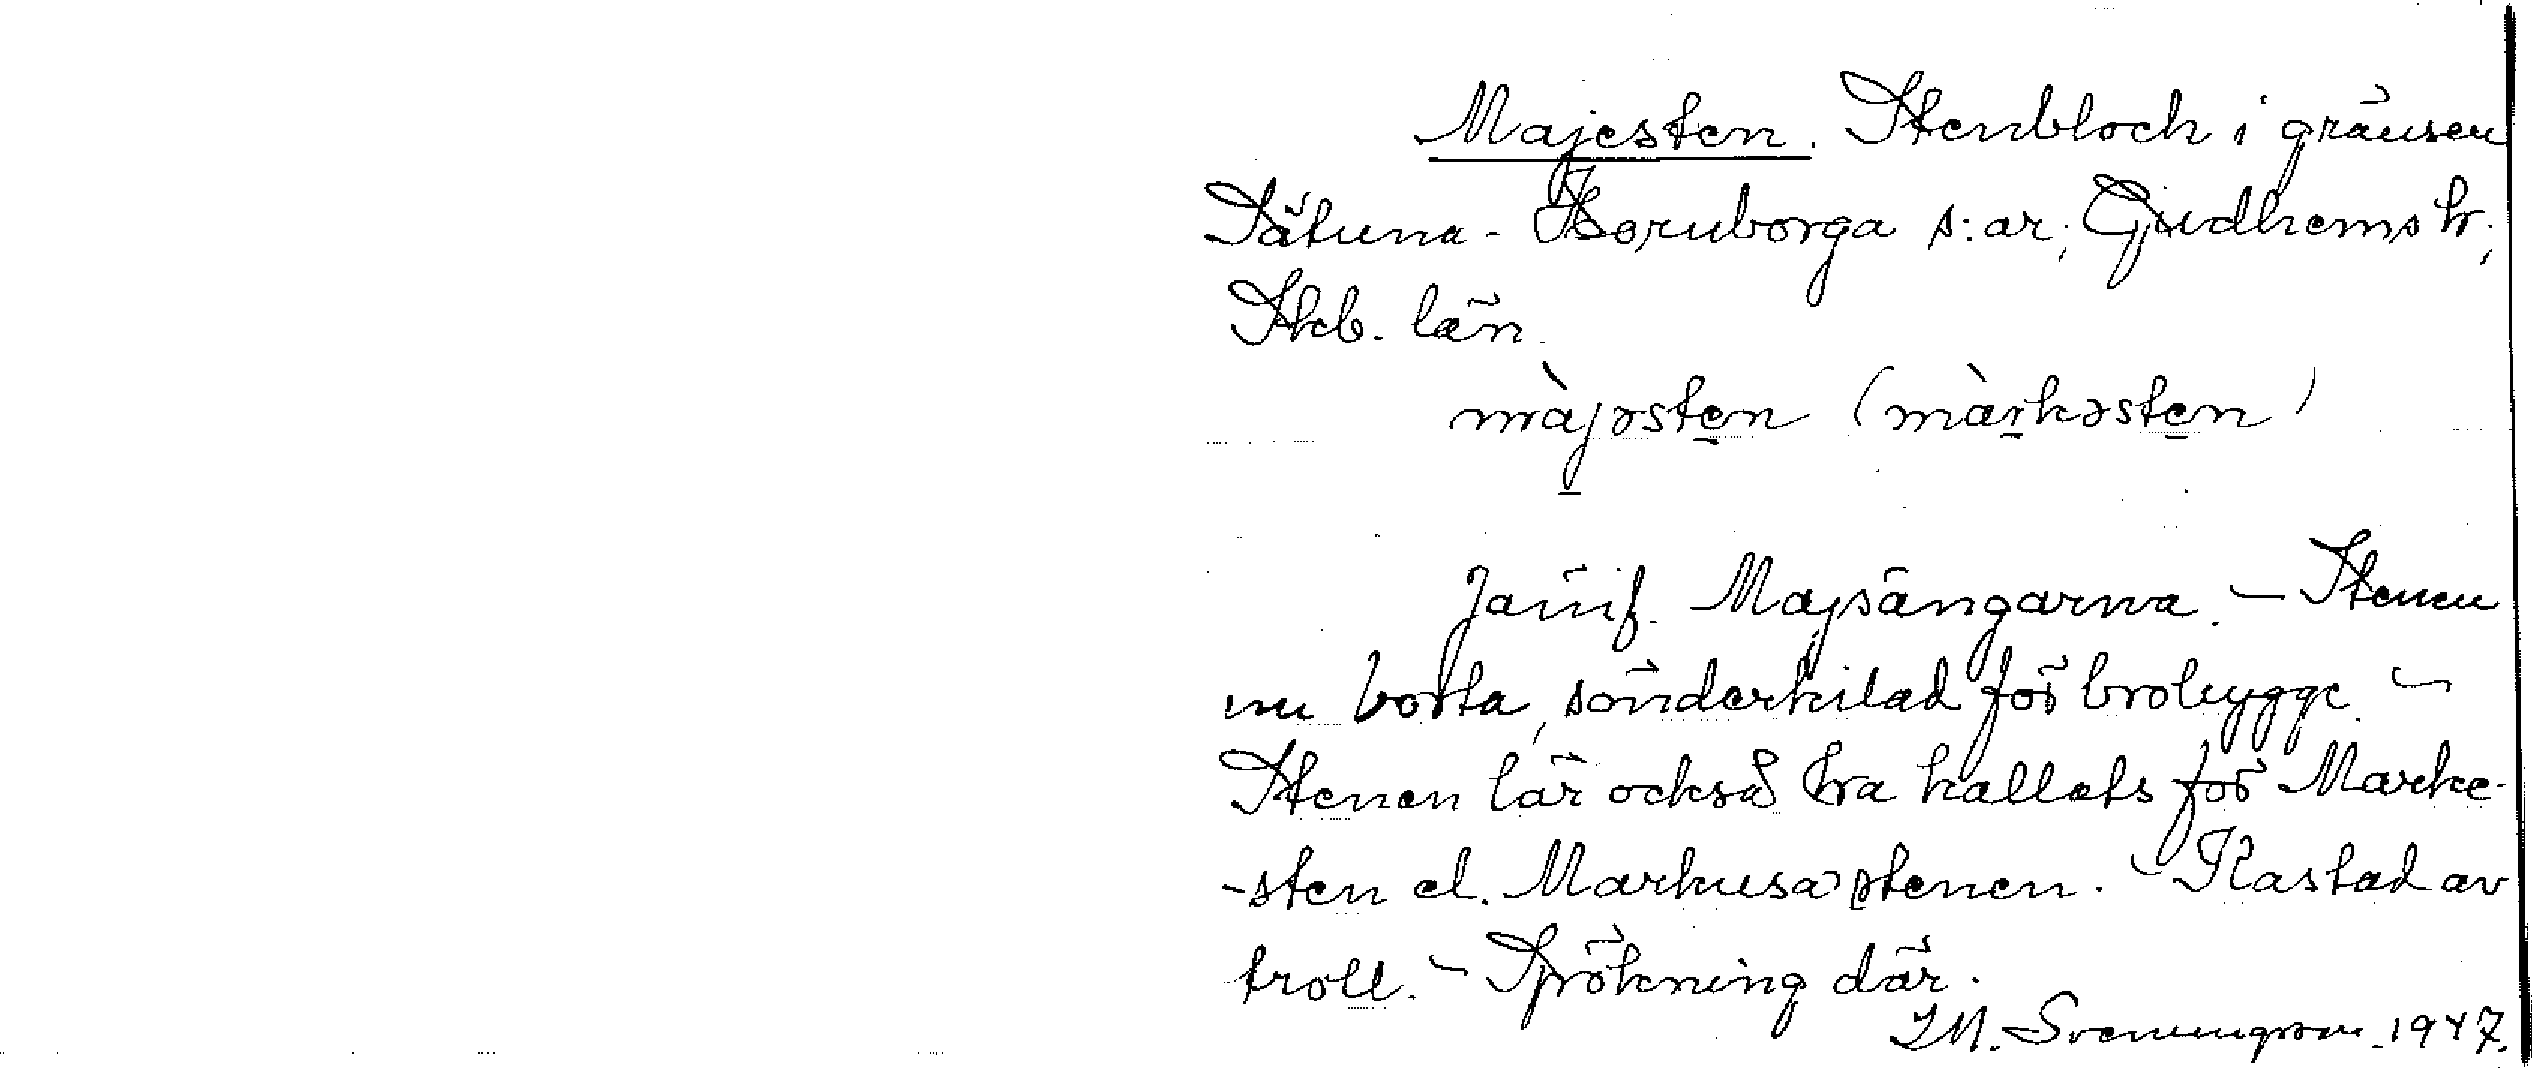 Majesten. Stenblock i gränsen
Sätuna - Hornborga s:ar, Gudhems hr,
Skb. län.
màjəsten (màrkəsten)
Jämf. Majsängarna. – Stenen
nu borta, sönderkilad för brobygge. –
Stenen lär också ha kallats för Marke-
-sten el. Markusa stenen. – Kastad av
troll. – Spökning där.
1947.